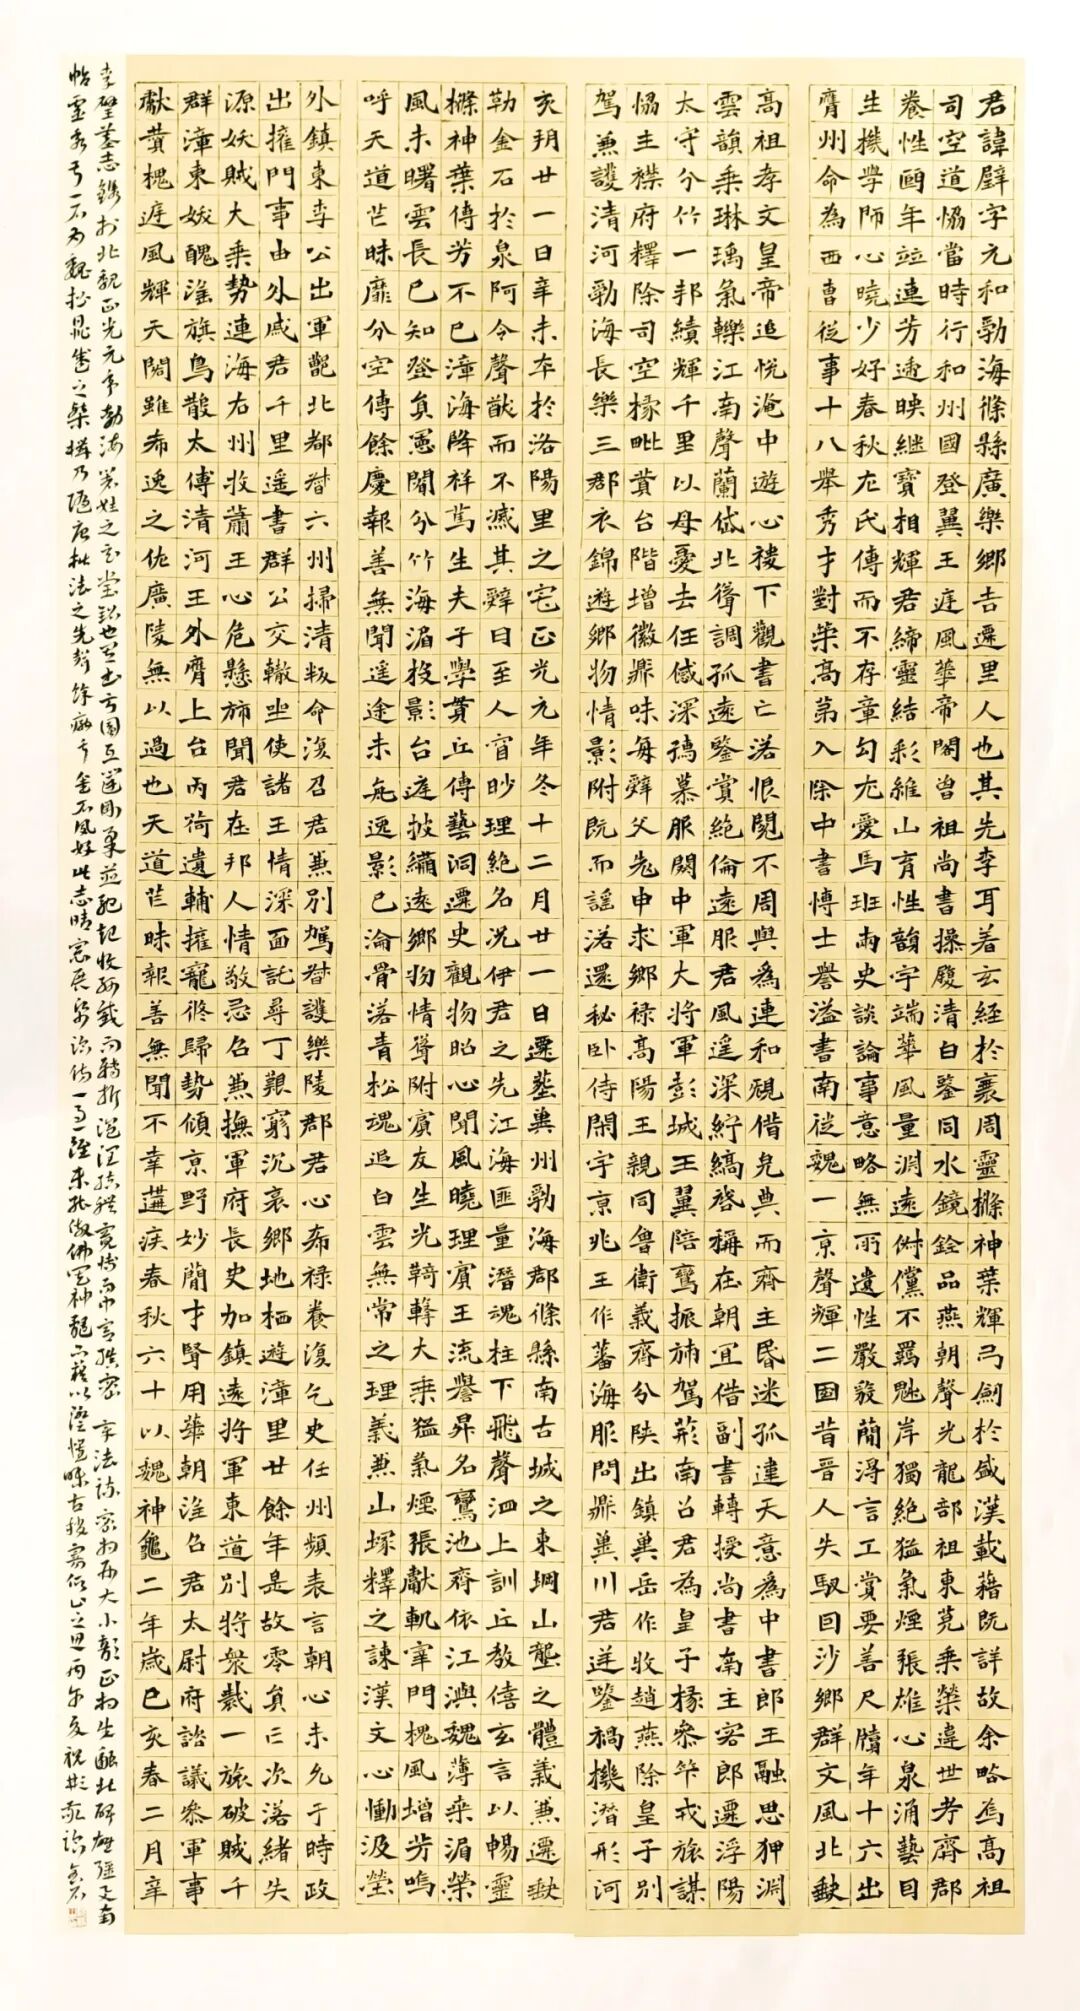 君諱璧字元和勃海條縣廣樂鄉吉遷里人也其先李耳著玄經於衰周靈檦神葉輝弓劍於盛漢載藉既詳故余略焉高祖
司空道恊當時行和州國登翼王庭風華帝閣曾祖尚書操履清白鑒同水鏡銓品燕朝聲光龍部祖東莞乘榮違世考齊郡
養性頤年竝連芳遞映繼寶相輝君締靈結彩維山育性韻宇端華風量淵遠倜儻不羈魁岸獨絕猛氣煙張雄心泉涌藝因
生機學師心曉少好春秋左氏傳而不存章句尤愛馬班兩史談論事意略無所遺性嚴毅簡得言工賞要善尺牘年十六出
膺州命為西曹從事十八舉秀才對策高第入除中書博士譽溢書南從魏一京聲輝二國昔晉人失馭囙沙鄉群文風北缺
高祖孝文皇帝追悅淹中遊心稷下觀書亡落恨閱不周與為連和規借完典而齊主昏迷孤違天意為中書郎王融思狎淵
雲韻乘琳瑀氣轢江南聲蘭岱北聳調孤遠鑒賞絕倫遠服君風遥深紵縞啓稱在朝宜借副書轉授尚書南主客郎遷浮陽
太守分竹一邦績輝千里以母憂去任慼深孺慕服闋中軍大將軍彭城王翼陪鸞振斾駕荊南召君為皇子掾參竿戎旅謀
恊主襟府釋除司空掾毗賛台階增徽鼎味每辤父老申求鄉祿高陽王親同魯衛義齊分陝出鎮冀岳作牧趙燕除皇子別
駕兼護清河勃海長樂三郡衣錦遊鄉物情影附既而謡落還秘卧侍閑宇京兆王作蕃海服問鼎冀川君逆鑒禍機潛形河
亥朔廿一日辛未卒於洛陽里之宅正光元年冬十二月廿一日遷葬冀州勃海郡條縣南古城之東堈山壟之體義兼遷缺
勒金石於泉阿令聲猷而不滅其辤曰至人窅眇理絕名況伊君之先江海匪量潛魂柱下飛聲泗上訓丘教僖玄言以暢靈
檦神葉傳芳不已漳海降祥篤生夫子學貫丘傳藝洞遷史觀物昭心聞風曉理賓王流譽昇名鸞池齊依江澳魏薄桒湄榮
風未曙雲長已知登負憲閣分竹海湄投影台庭披繡遠鄉物情聳附賓友生光大乘猛氣煙張獻軌宰門槐風增芳嗚
呼天道芒昧靡分空傳餘慶報善無聞遥途未逸影已淪骨落青松魂追白雲無常之理義兼山塚釋之諫漢文心慟汲塋
外鎮東李公出軍罷北都督六州掃清叛命復召君兼別駕督護樂陵郡君心希祿養復乞史任州頻表言朝心未允于時政
出擁門事由外戚君千里遥書群公交轍坐使諸王情深面託尋丁艱窮沉哀鄉地栖遊漳里廿餘年是故零負亡次落緒失
源妖賊大乘勢連海右州牧蕭王心危懸斾聞君在邦人情敬忌召兼撫軍府長史加鎮遠將軍東道別將衆裁一旅破賊千
群漳東妖醜滛旗鳥散太傅清河王外膺上台丙猗遺輔擁寵脩歸勢傾京野妙簡才賢用華朝望召君太尉府諮議參軍事
獻賛槐庭風輝天閣雖希逸之佐廣陵無以過也天道芒昧報善無聞不幸遘疾春秋六十以魏神龜二年歲己亥春二月辛
李璧墓志鐫於北魏正光元年勃海